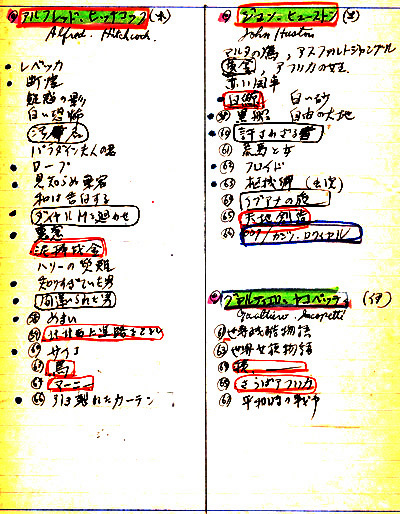 アルフレッド・ヒッチコック (米)
Alfred. Hitchcock.
レベッカ
断崖
疑惑の影
白い恐怖
汚名
パラダイン夫人の恋
ロープ
見知らぬ乗客
私は告白する
ダイヤルMを廻せ
裏窓
泥棒成金
ハリーの災難
知りすぎていた男
間違えられた男
めまい
北北西に進路をとれ
サイコ
鳥
マーニー
66 引き裂れたカーテン
ジョン・ヒューストン
John Huston
マルタの鷹, アスファルトジャングル
黄金, アフリカの女王
赤い風車
白鯨 白い砂
黒船 自由の大地
許されざる者
61 荒馬と女
フロイド
63
イグアナの夜
天地創造
007/カジノ・ロワイヤル
グァルティエロ・ヤコペッティ (伊)
Gualtiero Jacopetti
世界残酷物語
63 世界女族物語
さらばアフリカ